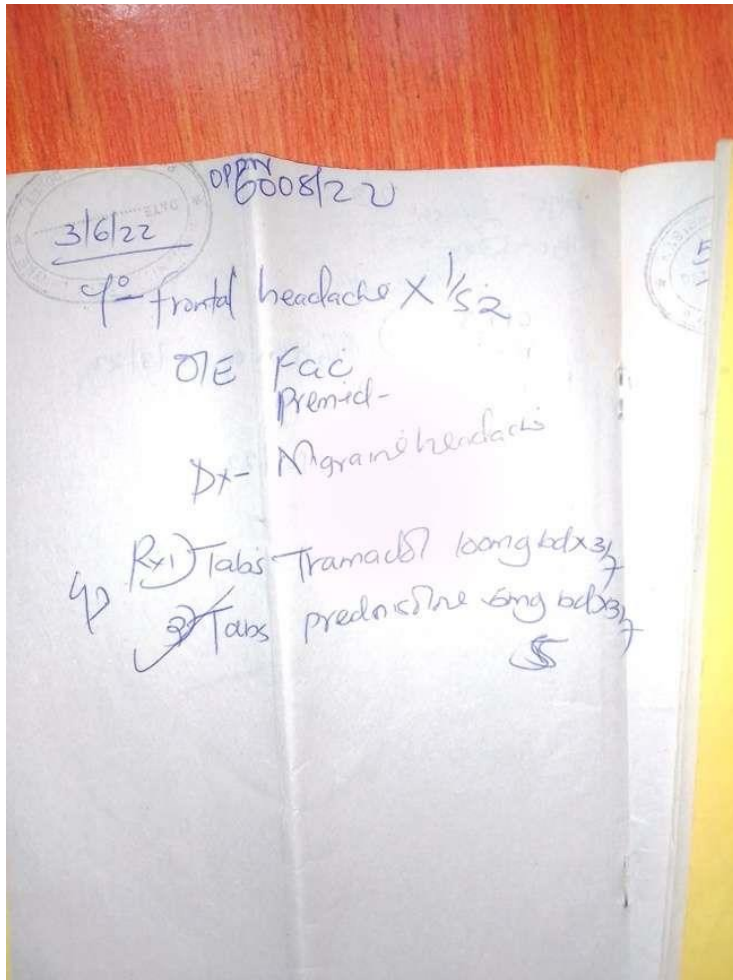 OPDN
6008/22
3/6/22
frontal headache X 1/52
O/E
Dx- Migraine headache
Rx 1) Tabs Tramadol 100mg bd x 3/7
2) Tabs prednisolone 5mg bd x 3/7